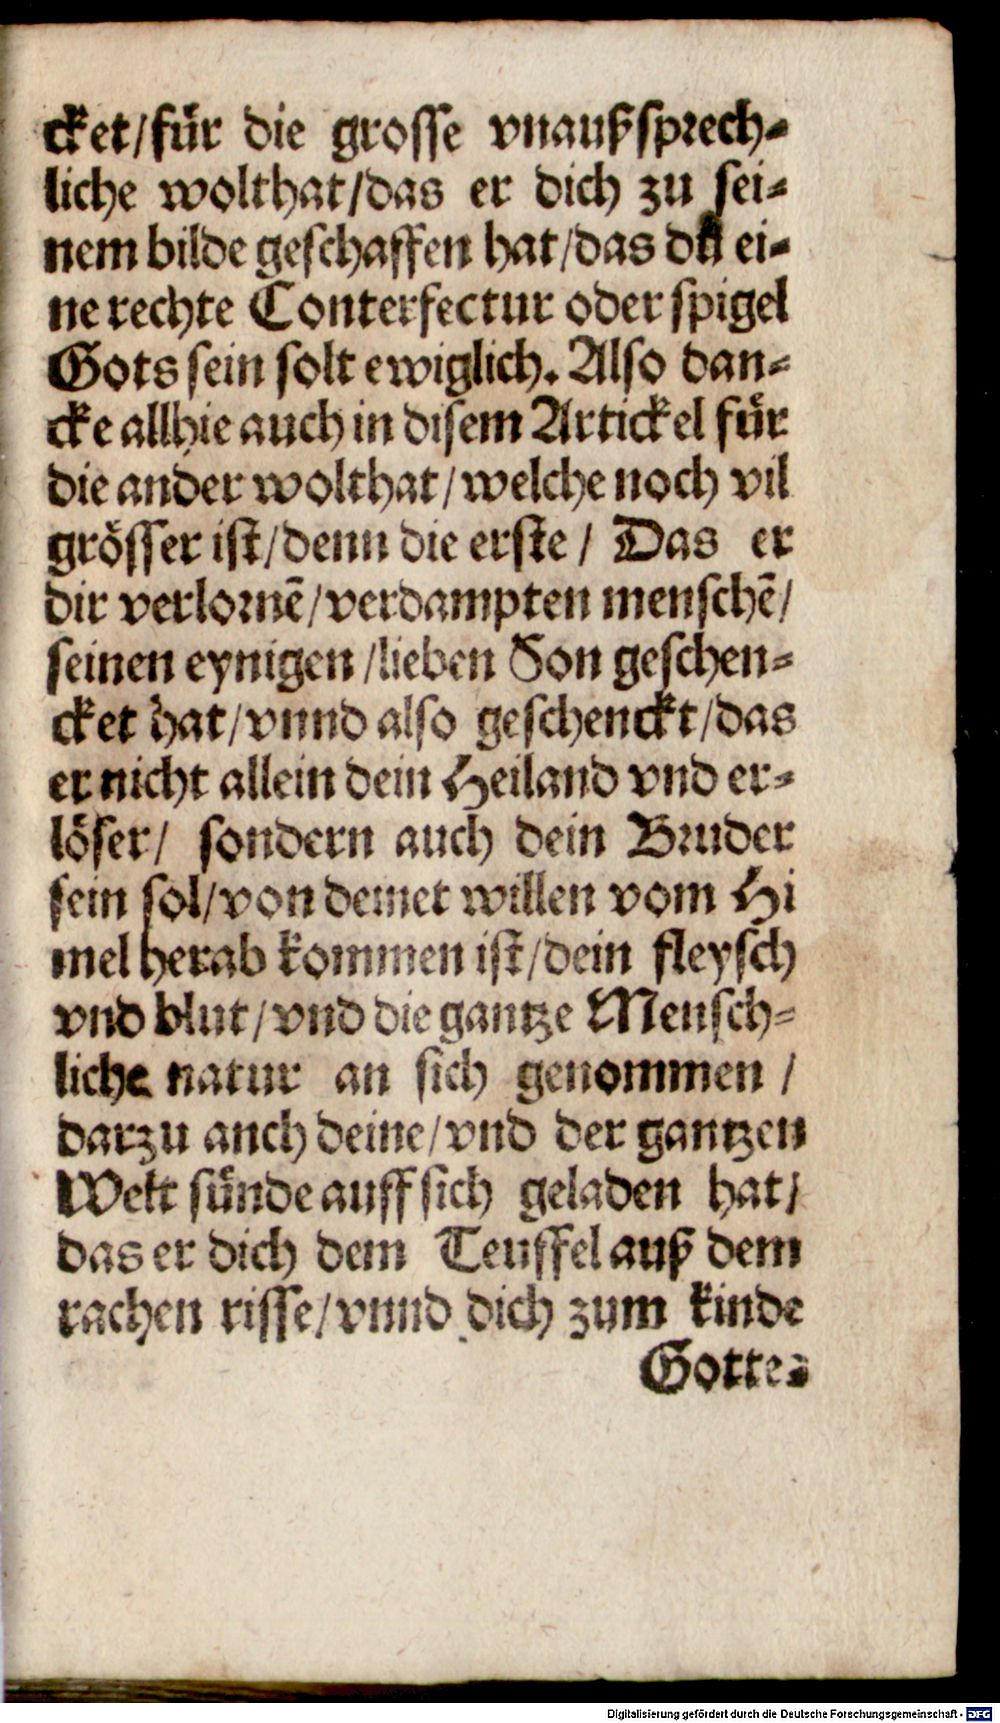 cket/für die grosse vnaußsprech-
liche wolthat/das er dich zu sei-
nem bilde geschaffen hat/das du ei-
ne rechte Conterfectur oder spigel
Gots sein solt ewiglich. Also dan-
cke allhie auch in disem Artickel für
die ander wolthat/welche noch vil
grösser ist/denn die erste/ Das er
dir verlornē/verdampten menschē/
seinen eynigen/lieben Son geschen-
cket hat/vnnd also geschenckt/das
er nicht allein dein Heiland vnd er-
löser/ sondern auch dein Bruder
sein sol/von deinet willen vom Hi
mel herab kommen ist/dein fleysch
vnd blut/vnd die gantze Mensch-
liche natur an sich genommen/
darzu anch deine/vnd der gantzen
Welt sünde auff sich geladen hat/
das er dich dem Teuffel auß dem
rachen risse/vnnd dich zum kinde
Gottes
Digitalisierung gefördert durch die Deutsche Forschungsgemeinschaft - DFG